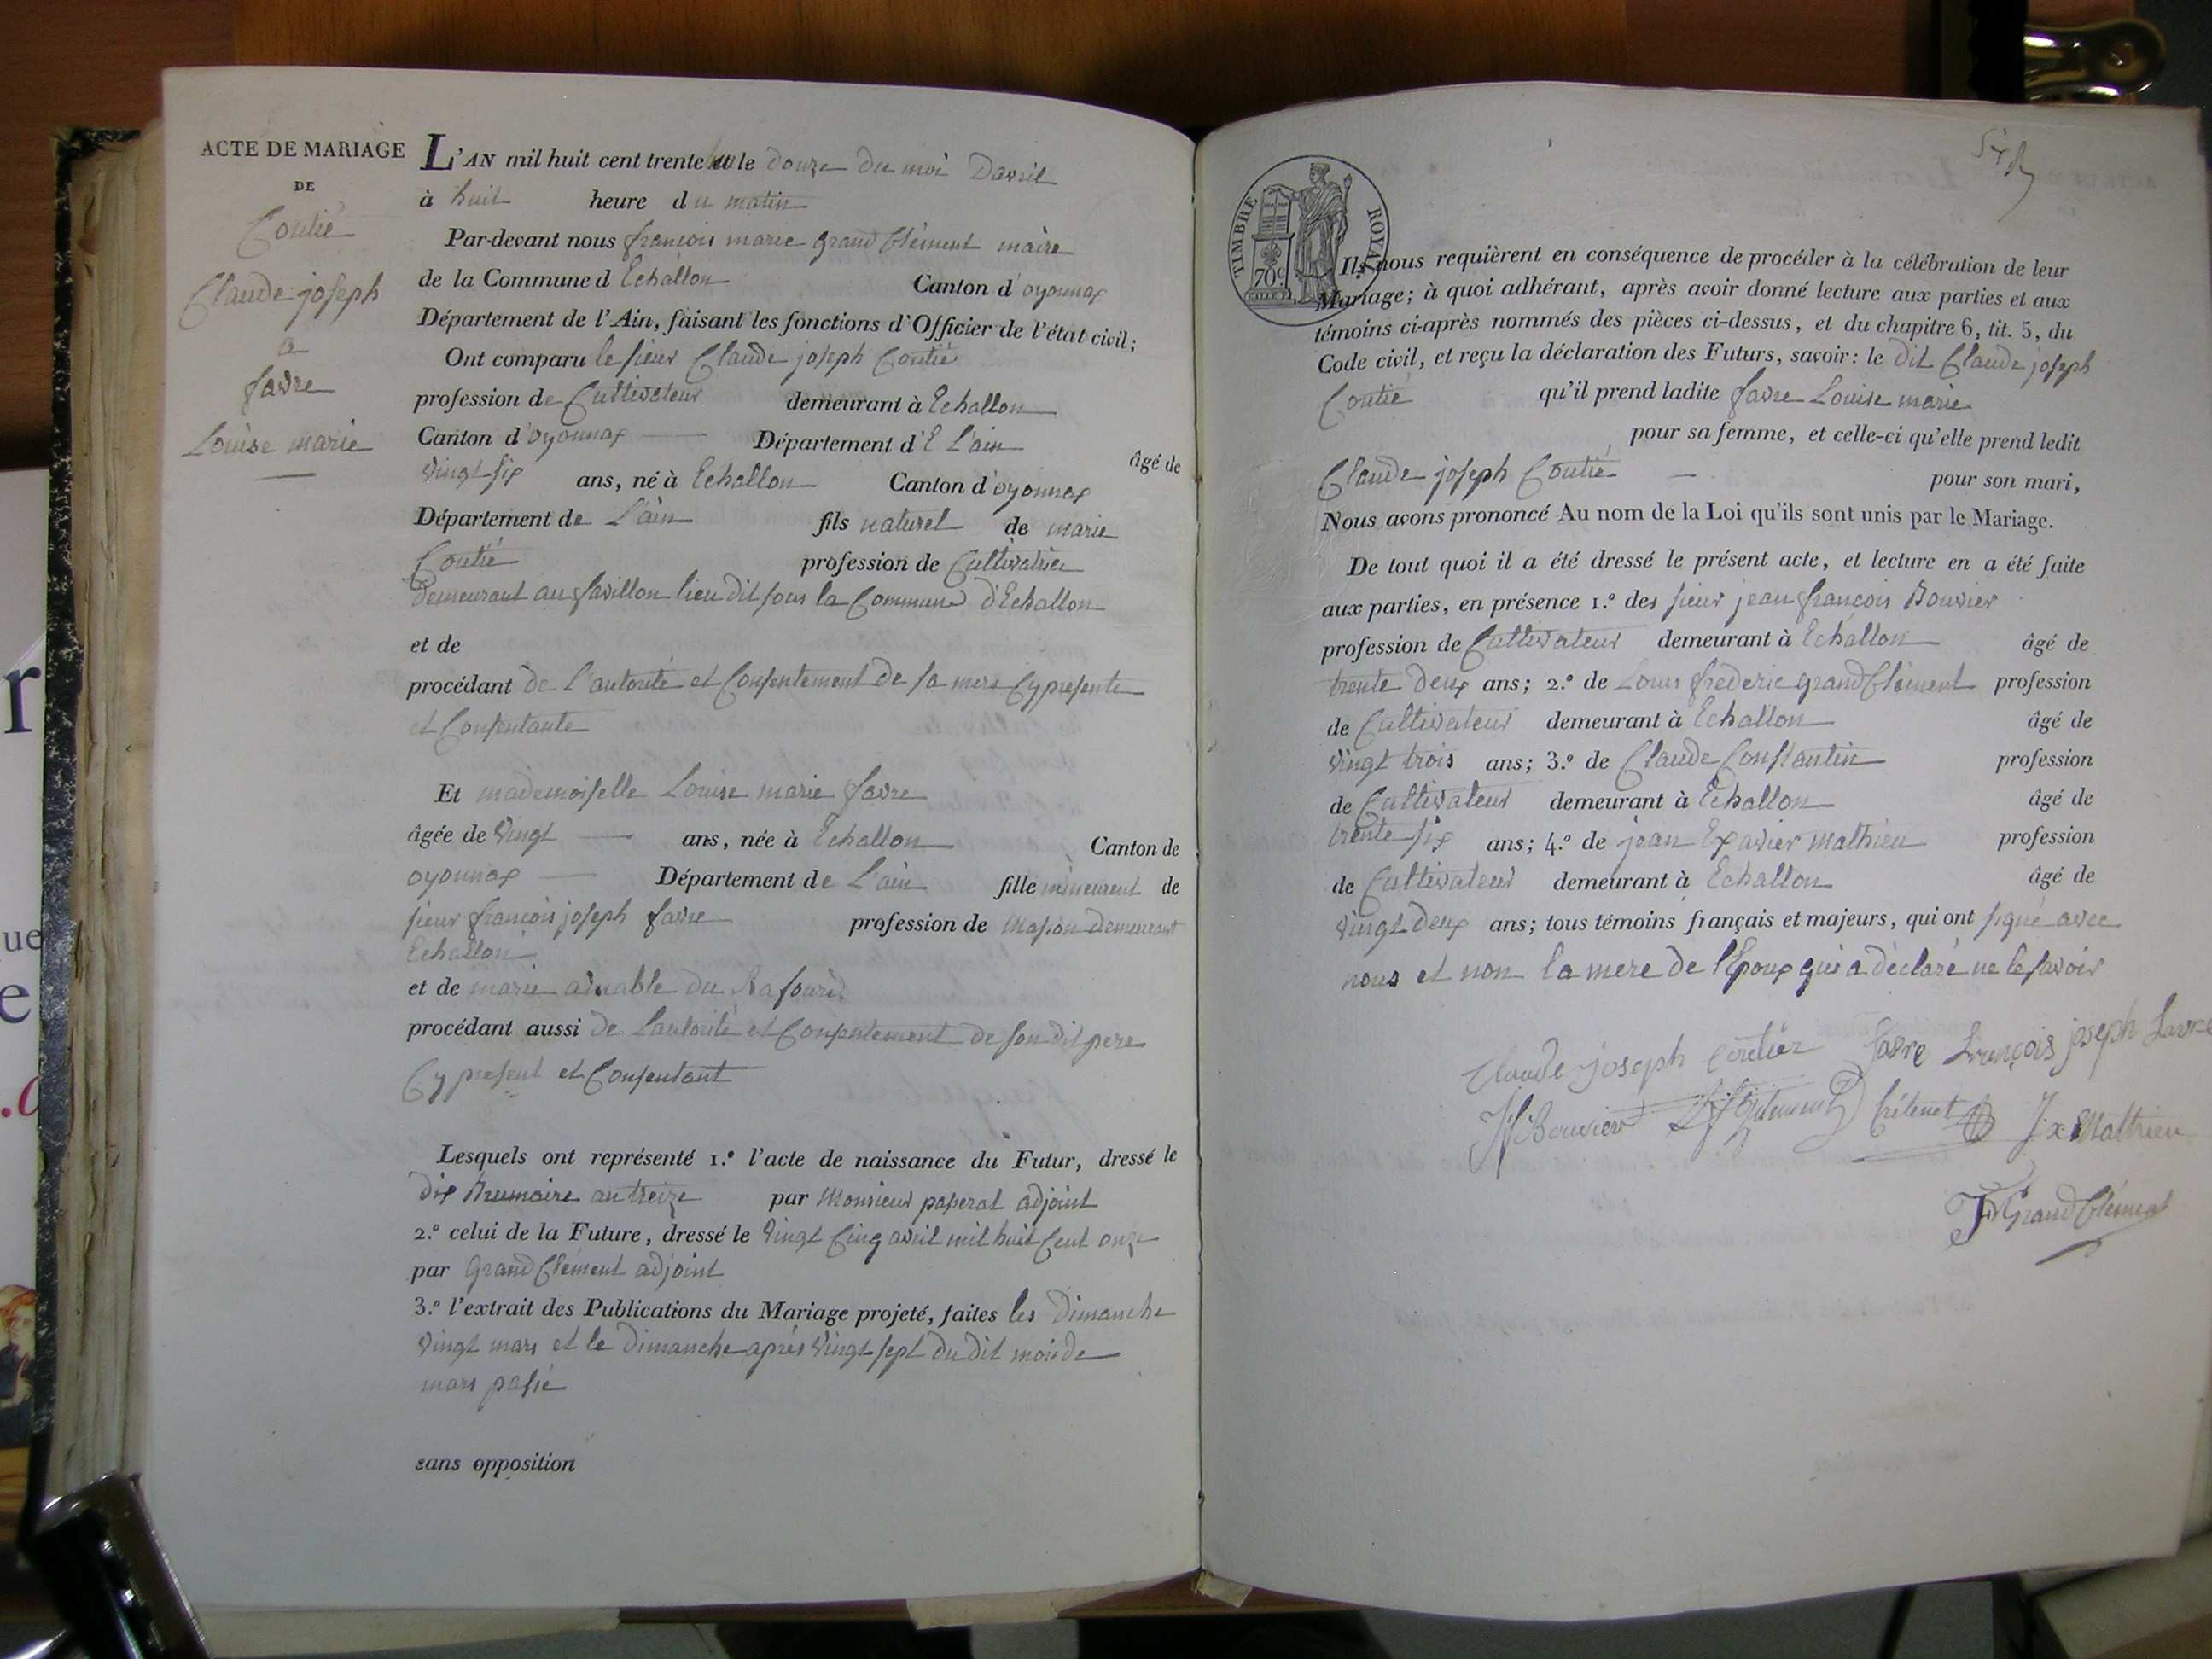 ACTE DE MARIAGE
DE
Coutié
Claude joseph
a
favre
Louise marie
L'AN mil huit cent trente le douze du moi Davril
à huit heure du matin
Par-devant nous françois marie grand Clément maire
de la Commune d Echallon Canton d'oyonnax
Département de l'Ain, faisant les fonctions d'Officier de l'état civil;
Ont comparu le sieur Claude joseph Coutié
profession de Cultivateur demeurant à Echallon
Canton d'oyonnax Département d'E L'ain âgé de
vingt six ans, né à Echallon Canton d'oyonnax
Département de L'ain fils naturel de marie
Coutié profession de Cultivatrice
demeurant au favillon lieu dit sous la Commune d'Echallon
et de
procédant de L'autorité et Consentement de sa mere Cy presente
et Consentante
Et mademoiselle Louise marie favre
âgée de vingt ans, née à Echallon Canton de
oyonnax Département de L'ain fille de
sieur françois joseph favre profession de Masson demeurant
Echallon
et de marie aimable du
procédant aussi de Lautorité et Consentement de son dit pere
Cy present et Consentant
Lesquels ont représenté 1.º l'acte de naissance du Futur, dressé le
dix Brumaire an treize par Monsieur adjoint
2.º celui de la Future, dressé le vingt Cinq avril mil huit Cent onze
par Grand Clément adjoint
3.º l'extrait des Publications du Mariage projeté, faites les dimanche
vingt mars et le dimanche après vingt sept du dit mois de
mars passé
sans opposition
TIMBRE ROYAL
70c
Ils nous requièrent en conséquence de procéder à la célébration de leur
Mariage; à quoi adhérant, après avoir donné lecture aux parties et aux
témoins ci-après nommés des pièces ci-dessus, et du chapitre 6, tit. 5, du
Code civil, et reçu la déclaration des Futurs, savoir: le dit Claude joseph
Coutié qu'il prend ladite favre Louise marie
pour sa femme, et celle-ci qu'elle prend ledit
Claude joseph Coutié pour son mari,
Nous avons prononcé Au nom de la Loi qu'ils sont unis par le Mariage.
De tout quoi il a été dressé le présent acte, et lecture en a été faite
aux parties, en présence 1.º des sieur jean françois Bouvier
profession de Cultivateur demeurant à Echallon âgé de
trente deux ans; 2.º de Louis frederic grand Clément profession
de Cultivateur demeurant à Echallon âgé de
vingt trois ans; 3.º de Claude Constantin profession
de Cultivateur demeurant à Echallon âgé de
trente six ans; 4.º de jean Exavier Mathieu profession
de Cultivateur demeurant à Echallon âgé de
vingt deux ans; tous témoins français et majeurs, qui ont signé avec
nous et non la mere de l'Epoux qui a déclaré ne le savoir
Claude joseph favre françois joseph favre
Jf Bouvier Jx Mathieu
Grand Clément